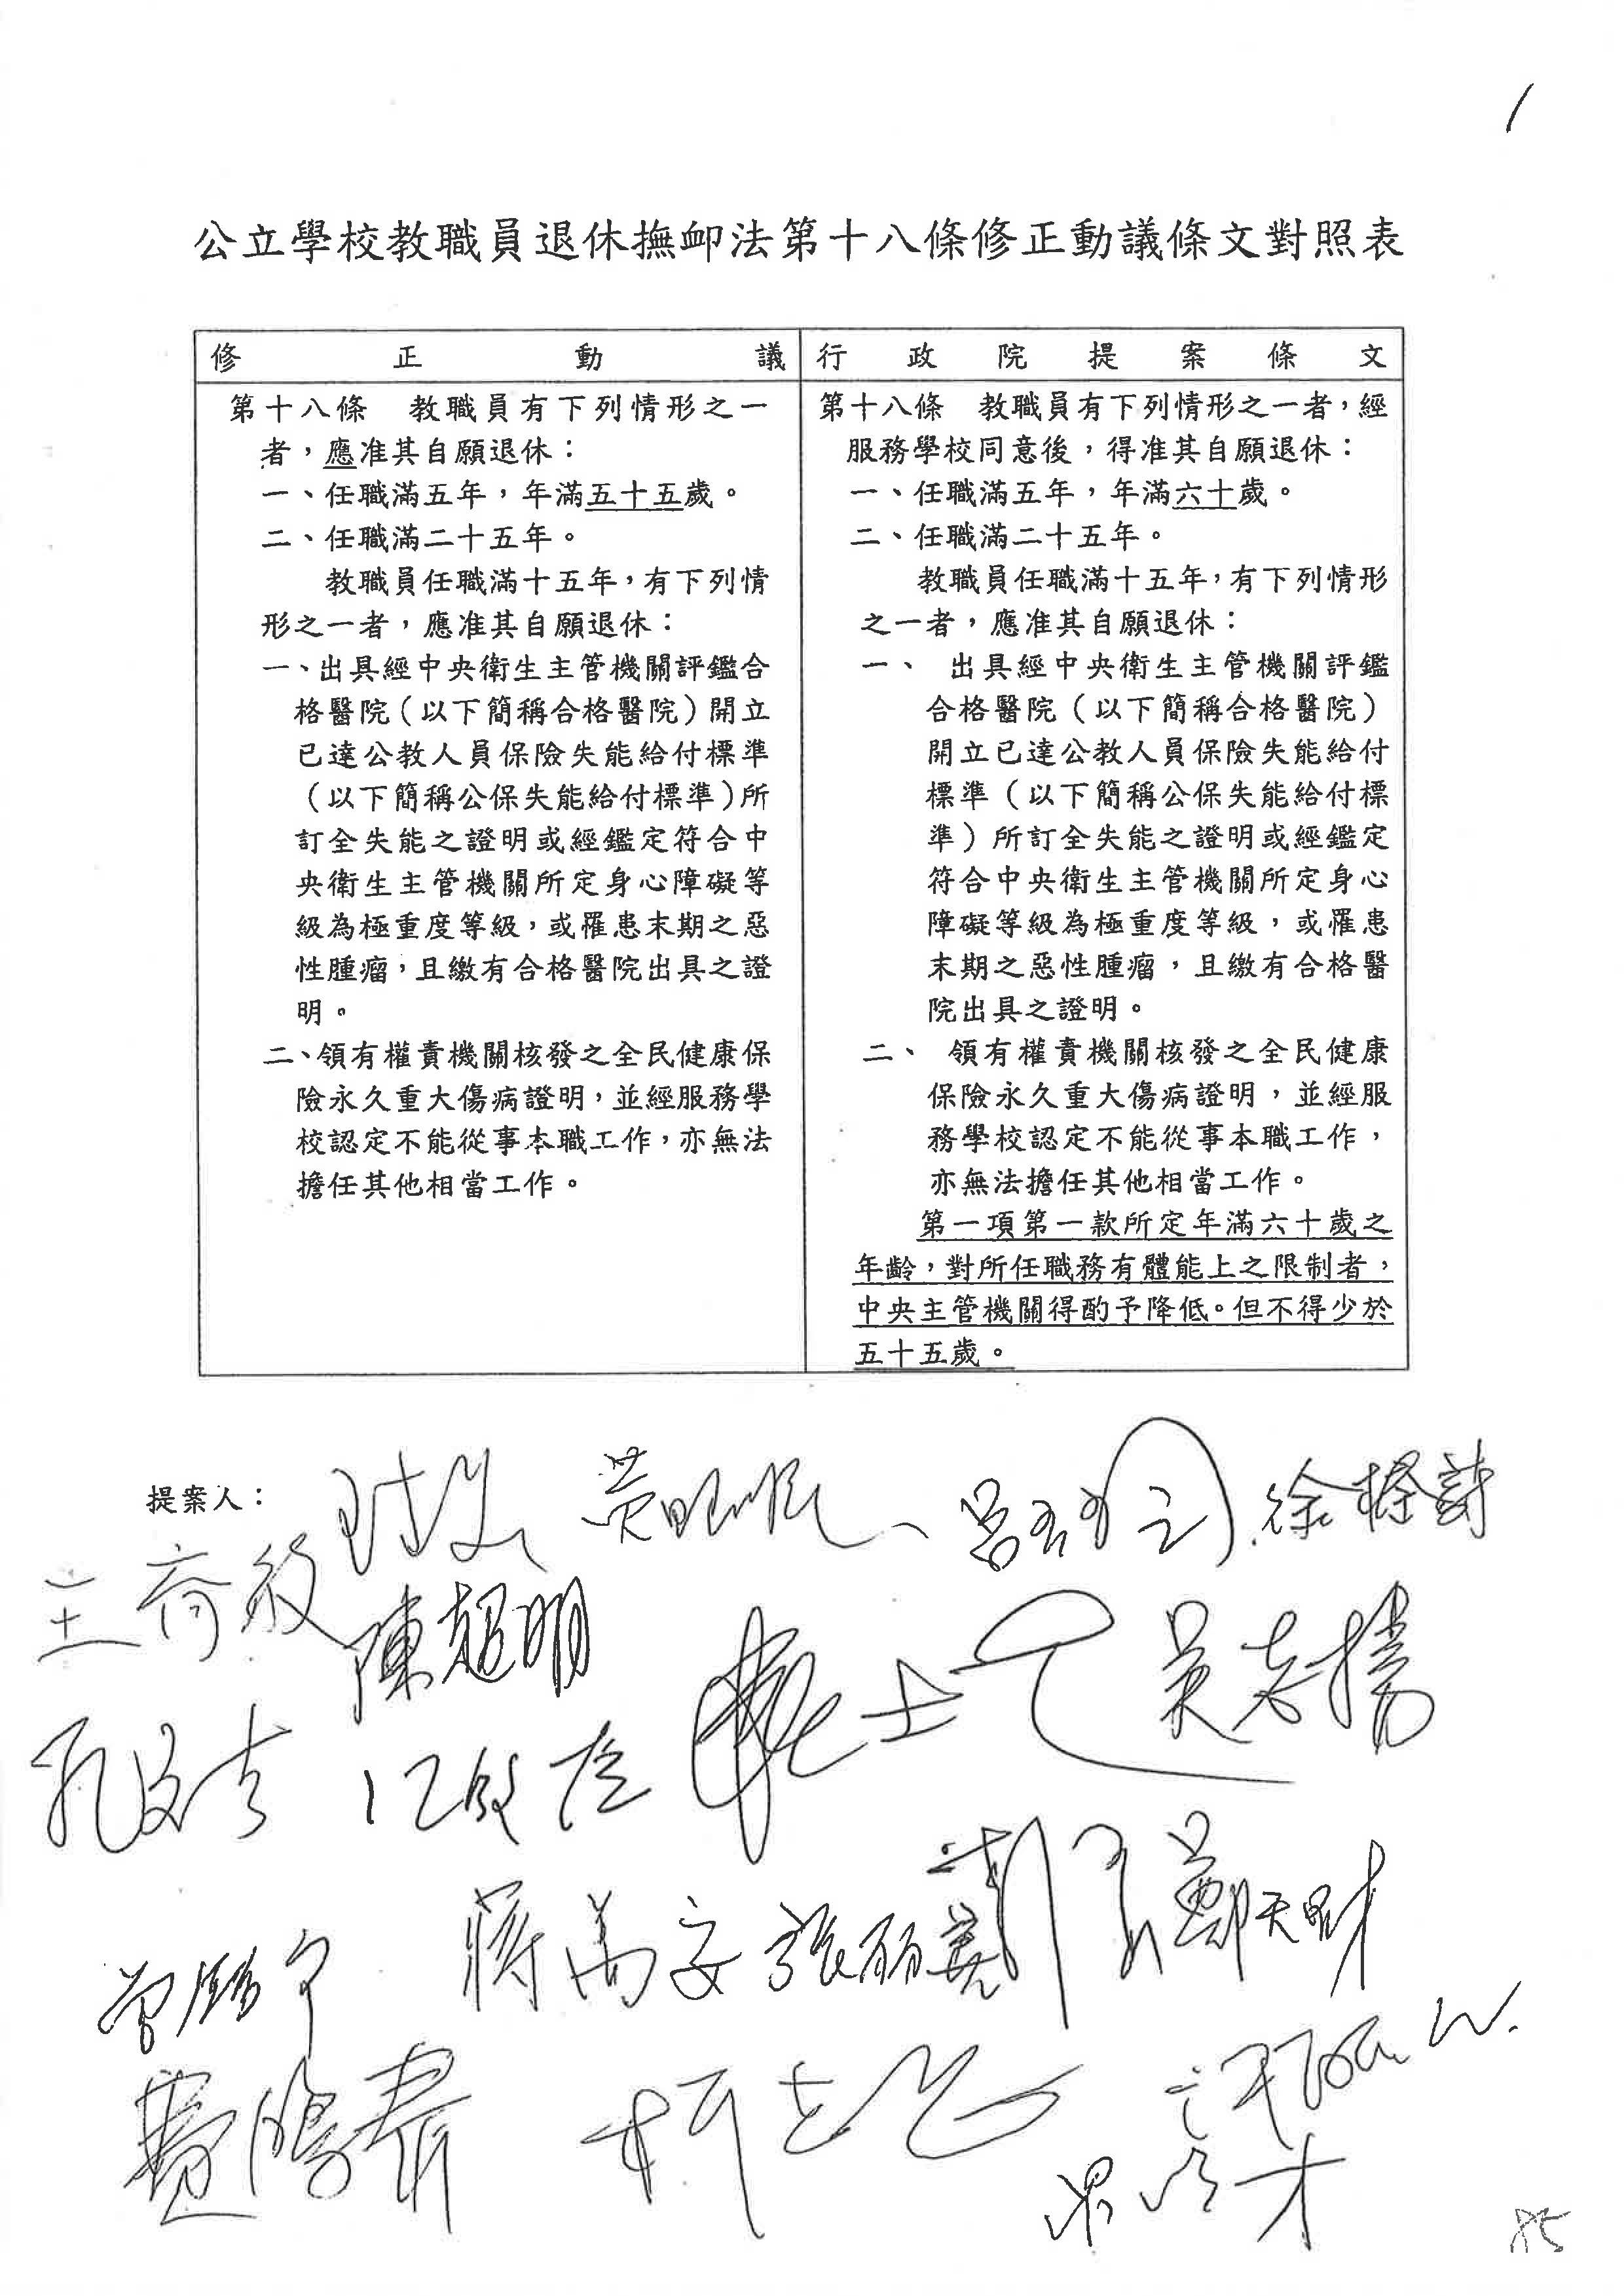 公立學校教職員退休撫卹法第十八條修正動議條文對照表
修正動議
第十八條　教職員有下列情形之一
者，應准其自願退休：
一、任職滿五年，年滿五十五歲。
二、任職滿二十五年。
教職員任職滿十五年，有下列情
形之一者，應准其自願退休：
一、出具經中央衛生主管機關評鑑合
格醫院（以下簡稱合格醫院）開立
已達公教人員保險失能給付標準
（以下簡稱公保失能給付標準）所
訂全失能之證明或經鑑定符合中
央衛生主管機關所定身心障礙等
級為極重度等級，或罹患末期之惡
性腫瘤，且繳有合格醫院出具之證
明。
二、領有權責機關核發之全民健康保
險永久重大傷病證明，並經服務學
校認定不能從事本職工作，亦無法
擔任其他相當工作。
行政院提案條文
第十八條　教職員有下列情形之一者，經
服務學校同意後，得准其自願退休：
一、任職滿五年，年滿六十歲。
二、任職滿二十五年。
教職員任職滿十五年，有下列情形
之一者，應准其自願退休：
一、　出具經中央衛生主管機關評鑑
合格醫院（以下簡稱合格醫院）
開立已達公教人員保險失能給付
標準（以下簡稱公保失能給付標
準）所訂全失能之證明或經鑑定
符合中央衛生主管機關所定身心
障礙等級為極重度等級，或罹患
末期之惡性腫瘤，且繳有合格醫
院出具之證明。
二、　領有權責機關核發之全民健康
保險永久重大傷病證明，並經服
務學校認定不能從事本職工作，
亦無法擔任其他相當工作。
第一項第一款所定年滿六十歲之
年齡，對所任職務有體能上之限制者，
中央主管機關得酌予降低。但不得少於
五十五歲。
提案人：
黃昭順
徐榛蔚
王育敏
陳超明
吳志揚
孔文吉
江啟臣
蔣萬安
張麗善
鄭天財
曾銘宗
費鴻泰
柯志恩
85